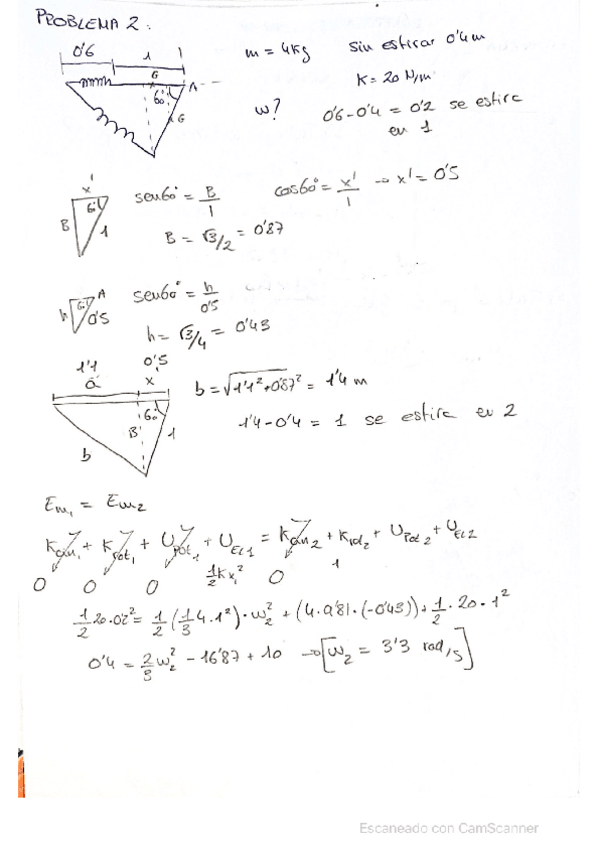 PROBLEMA 2:
0'6 1
G A
60° G
m = 4Kg sin estirar 0'4m
K = 20 N/m
w? 0'6-0'4 = 0'2 se estira
en 1
x'
60°
B 1
sen60° = B/1 cos60° = x'/1 → x' = 0'5
B = √3/2 = 0'87
A
h 0'5
sen60° = h/0'5
h = √3/4 = 0'43
1'1 0'5
a x
60°
B 1
b
b = √1'1²+0'87² = 1'4 m
1'4-0'4 = 1 se estira en 2
Em₁ = Em₂
Kcin₁ + Krot₁ + Upot₁ + UEL1 = Kcin₂ + Krot₂ + Upot₂ + UEL2
0 0 0 1/2 K x₁² 0
1/2 20·0'2² = 1/2 (1/3 4·1²)·w₂² + (4·9'81·(-0'43)) + 1/2·20·1²
0'4 = 2/3 w₂² - 16'87 + 10 → [w₂ = 3'3 rad/s]
Escaneado con CamScanner